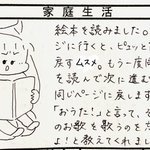 家庭生活
絵本を読みました。
ジに行くと、ピュッと
戻すムスメ。もう一度同
を読んで次に進む
同じページに戻します
「おうた!」と言って、そ
のお歌を歌うのを忘
よ!と教えてくれまし